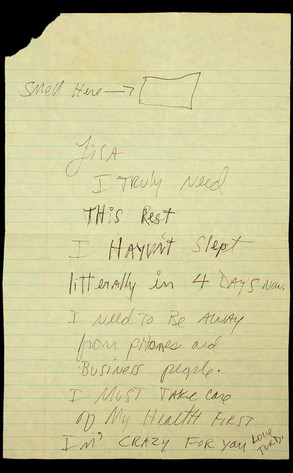 Smell Here →
Lisa
I Truly Need
THiS Rest
I HAVIN't Slept
litterally in 4 DAYS Now.
I need To Be AWAY
from pHones and
Business people.
I MUST TAKE CARE
of My HealtH FIRST
I'M' CRAZY FOR YOU Love
TURD.